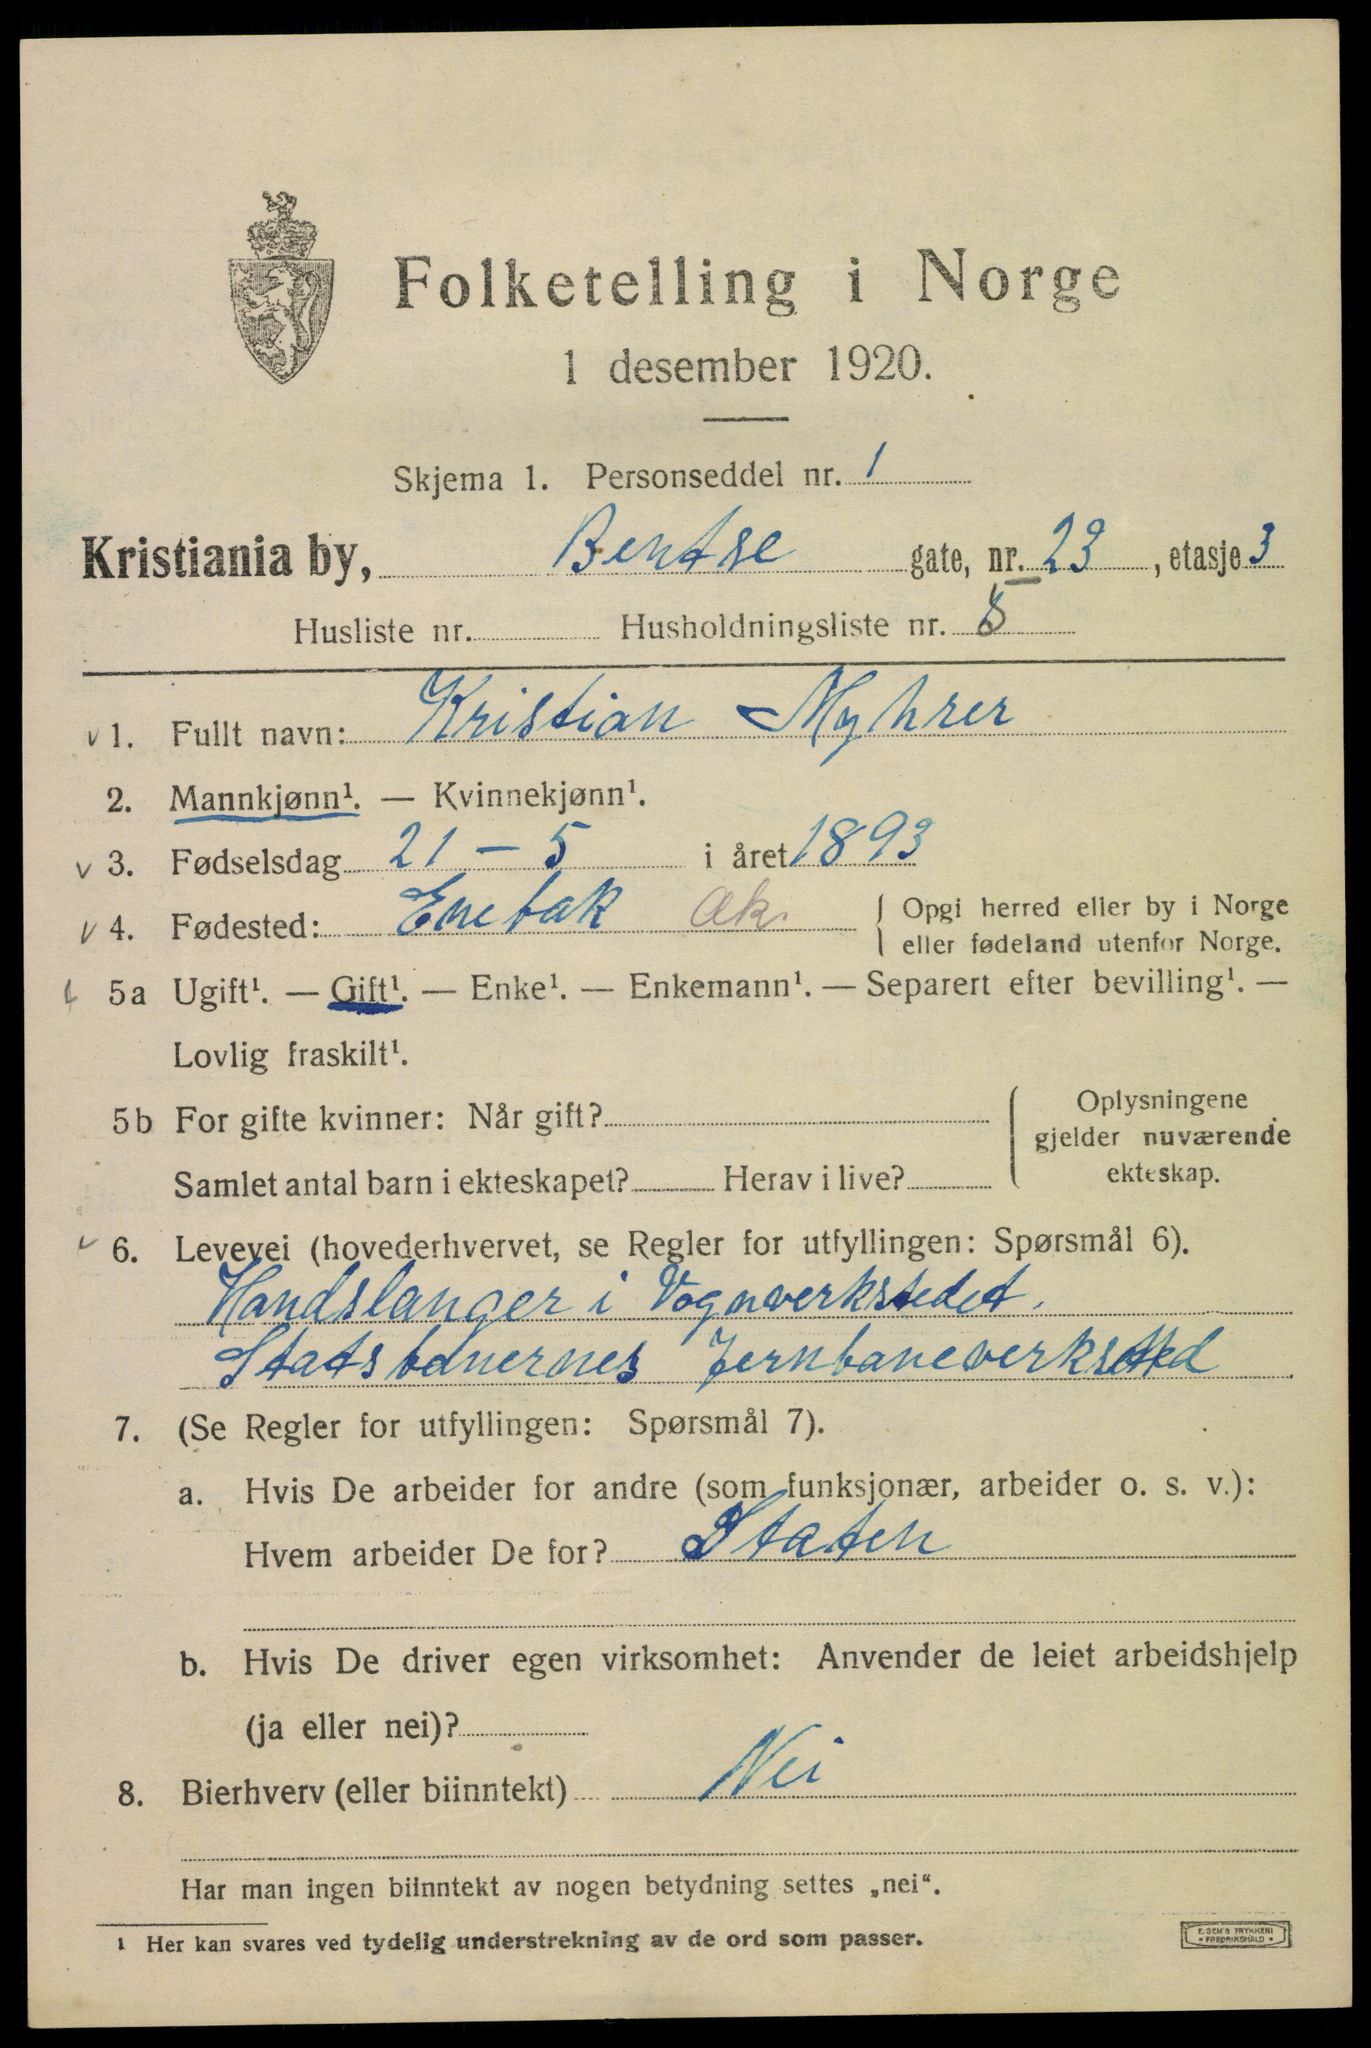 Folketelling i Norge
1 desember 1920.
Skjema 1. Personseddel nr. 1
Kristiania by, Bentse gate, nr. 23, etasje 3
Husliste nr. Husholdningsliste nr. 8
1. Fullt navn: Kristian Myhrer
2. Mannkjønn¹. — Kvinnekjønn¹.
3. Fødselsdag 21 – 5 i året 1893
4. Fødested: Enebak Ak. { Opgi herred eller by i Norge
eller fødeland utenfor Norge.
5a Ugift¹. — Gift¹. — Enke¹. — Enkemann¹. — Separert efter bevilling¹. —
Lovlig fraskilt¹.
5b For gifte kvinner: Når gift? Oplysningene
gjelder nuværende
Samlet antal barn i ekteskapet? Herav i live? ekteskap.
6. Levevei (hovederhvervet, se Regler for utfyllingen: Spørsmål 6).
Handslanger i Vognverkstedet.
Statsbanernes Jernbaneverksted
7. (Se Regler for utfyllingen: Spørsmål 7).
a. Hvis De arbeider for andre (som funksjonær, arbeider o. s. v.):
Hvem arbeider De for? Staten
b. Hvis De driver egen virksomhet: Anvender de leiet arbeidshjelp
(ja eller nei)?
8. Bierhverv (eller biinntekt) Nei
Har man ingen biinntekt av nogen betydning settes „nei“.
¹ Her kan svares ved tydelig understrekning av de ord som passer.
E. SEM'S TRYKKERI
• FREDRIKSHALD •